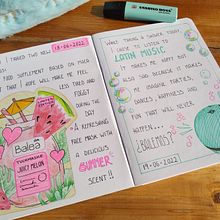 STABILO BOSS
I TRIED TWO NEW
13-06-2022
FOOD SUPPLEMENT BASED ON MACA
THAT I HOPE WILL MAKE ME FEEL
LESS TIRED
AND
FOGGY
DURING THE
DAY
A REFRESHING
FACE MASK WITH
A DELICIOUS
SUMMER
SCENT!!
Balea
TUCHMASKE
JUICY MELON
WHILE TAKING A SHOWER TODAY
I CAME TO LISTENING TO
LATIN MUSIC
IT MAKES ME HAPPY BUT
ALSO SAD BECAUSE IT MAKES
ME IMAGINE PARTIES,
DANCES, HAPPINESS AND
FUN THAT WILL NEVER
HAPPEN...
¿BAILEMOS?
14-06-2022